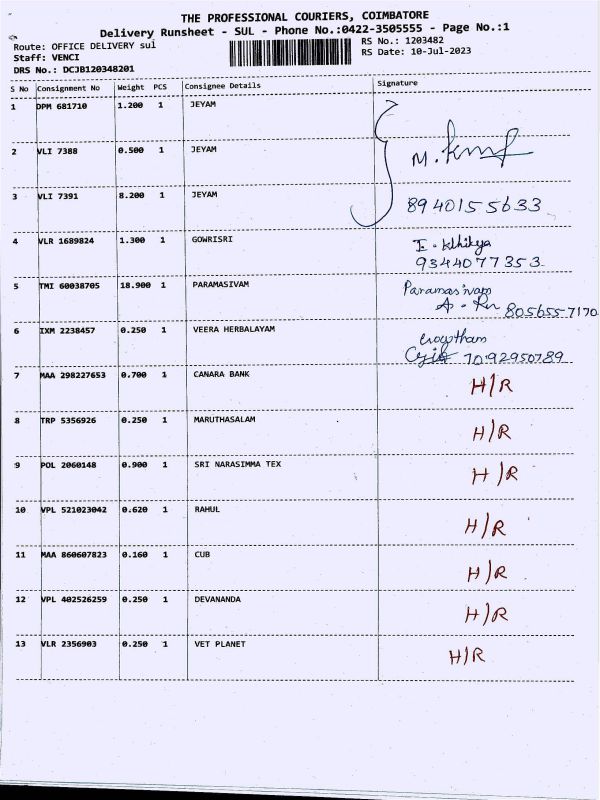 THE PROFESSIONAL COURIERS, COIMBATORE
Delivery Runsheet - SUL - Phone No.:0422-3505555 - Page No.:1
Route: OFFICE DELIVERY sul RS No.: 1203482
Staff: VENCI RS Date: 10-Jul-2023
DRS No.: DCJB120348201
S No Consignment No Weight PCS Consignee Details Signature
1 DPM 681710 1.200 1 JEYAM
2 VLI 7388 0.500 1 JEYAM M.
3 VLI 7391 8.200 1 JEYAM 8940155633
4 VLR 1689824 1.300 1 GOWRISRI
9344077353
5 TMI 60038705 18.900 1 PARAMASIVAM Paramasivam
8056557170
6 IXM 2238457 0.250 1 VEERA HERBALAYAM
7092950789
7 MAA 298227653 0.700 1 CANARA BANK H/R
8 TRP 5356926 0.250 1 MARUTHASALAM H/R
9 POL 2060148 0.900 1 SRI NARASIMMA TEX H/R
10 VPL 521023042 0.620 1 RAHUL H/R
11 MAA 860607823 0.160 1 CUB H/R
12 VPL 402526259 0.250 1 DEVANANDA H/R
13 VLR 2356903 0.250 1 VET PLANET H/R